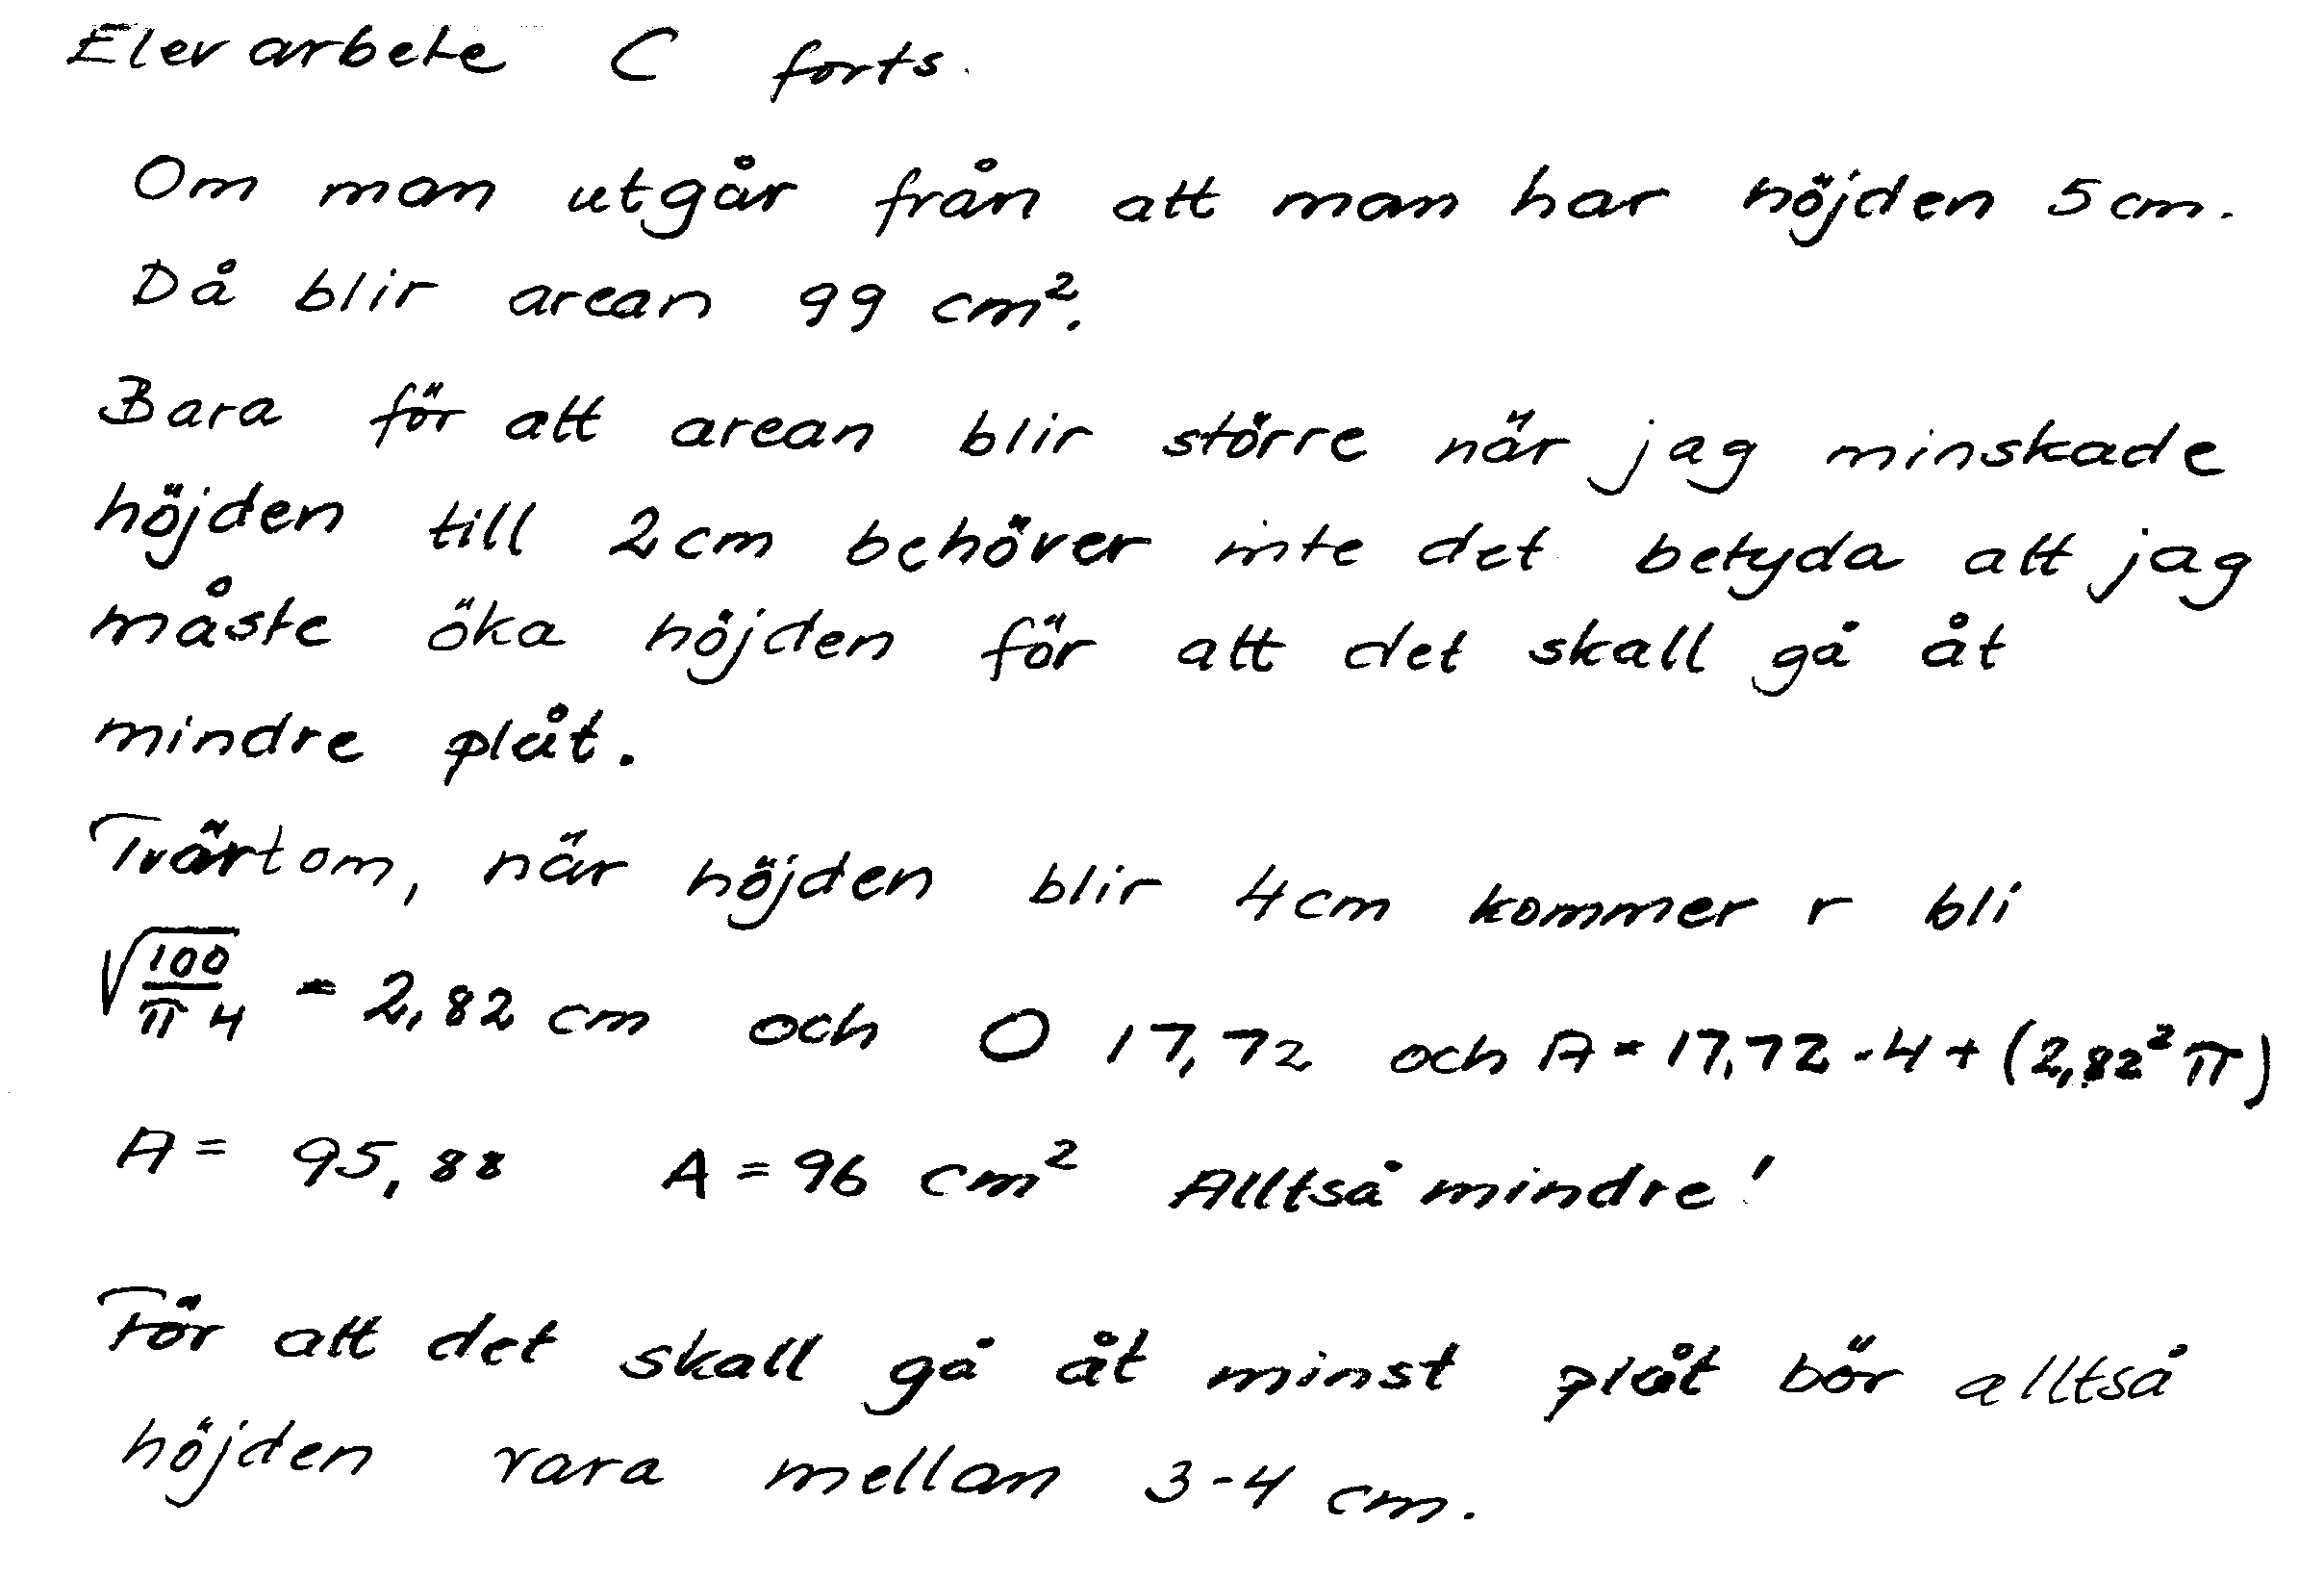 Elevarbete C forts.
Om man utgår från att man har höjden 5 cm.
Då blir arean 99 cm².
Bara för att arean blir större när jag minskade
höjden till 2 cm behöver inte det betyda att jag
måste öka höjden för att det skall gå åt
mindre plåt.
Tvärtom, när höjden blir 4 cm kommer r bli
√(100/π 4) = 2,82 cm och O 17,72 och A = 17,72 · 4 + (2,82² π)
A = 95,88 A = 96 cm² Alltså mindre!
För att det skall gå åt minst plåt bör alltså
höjden vara mellan 3-4 cm.